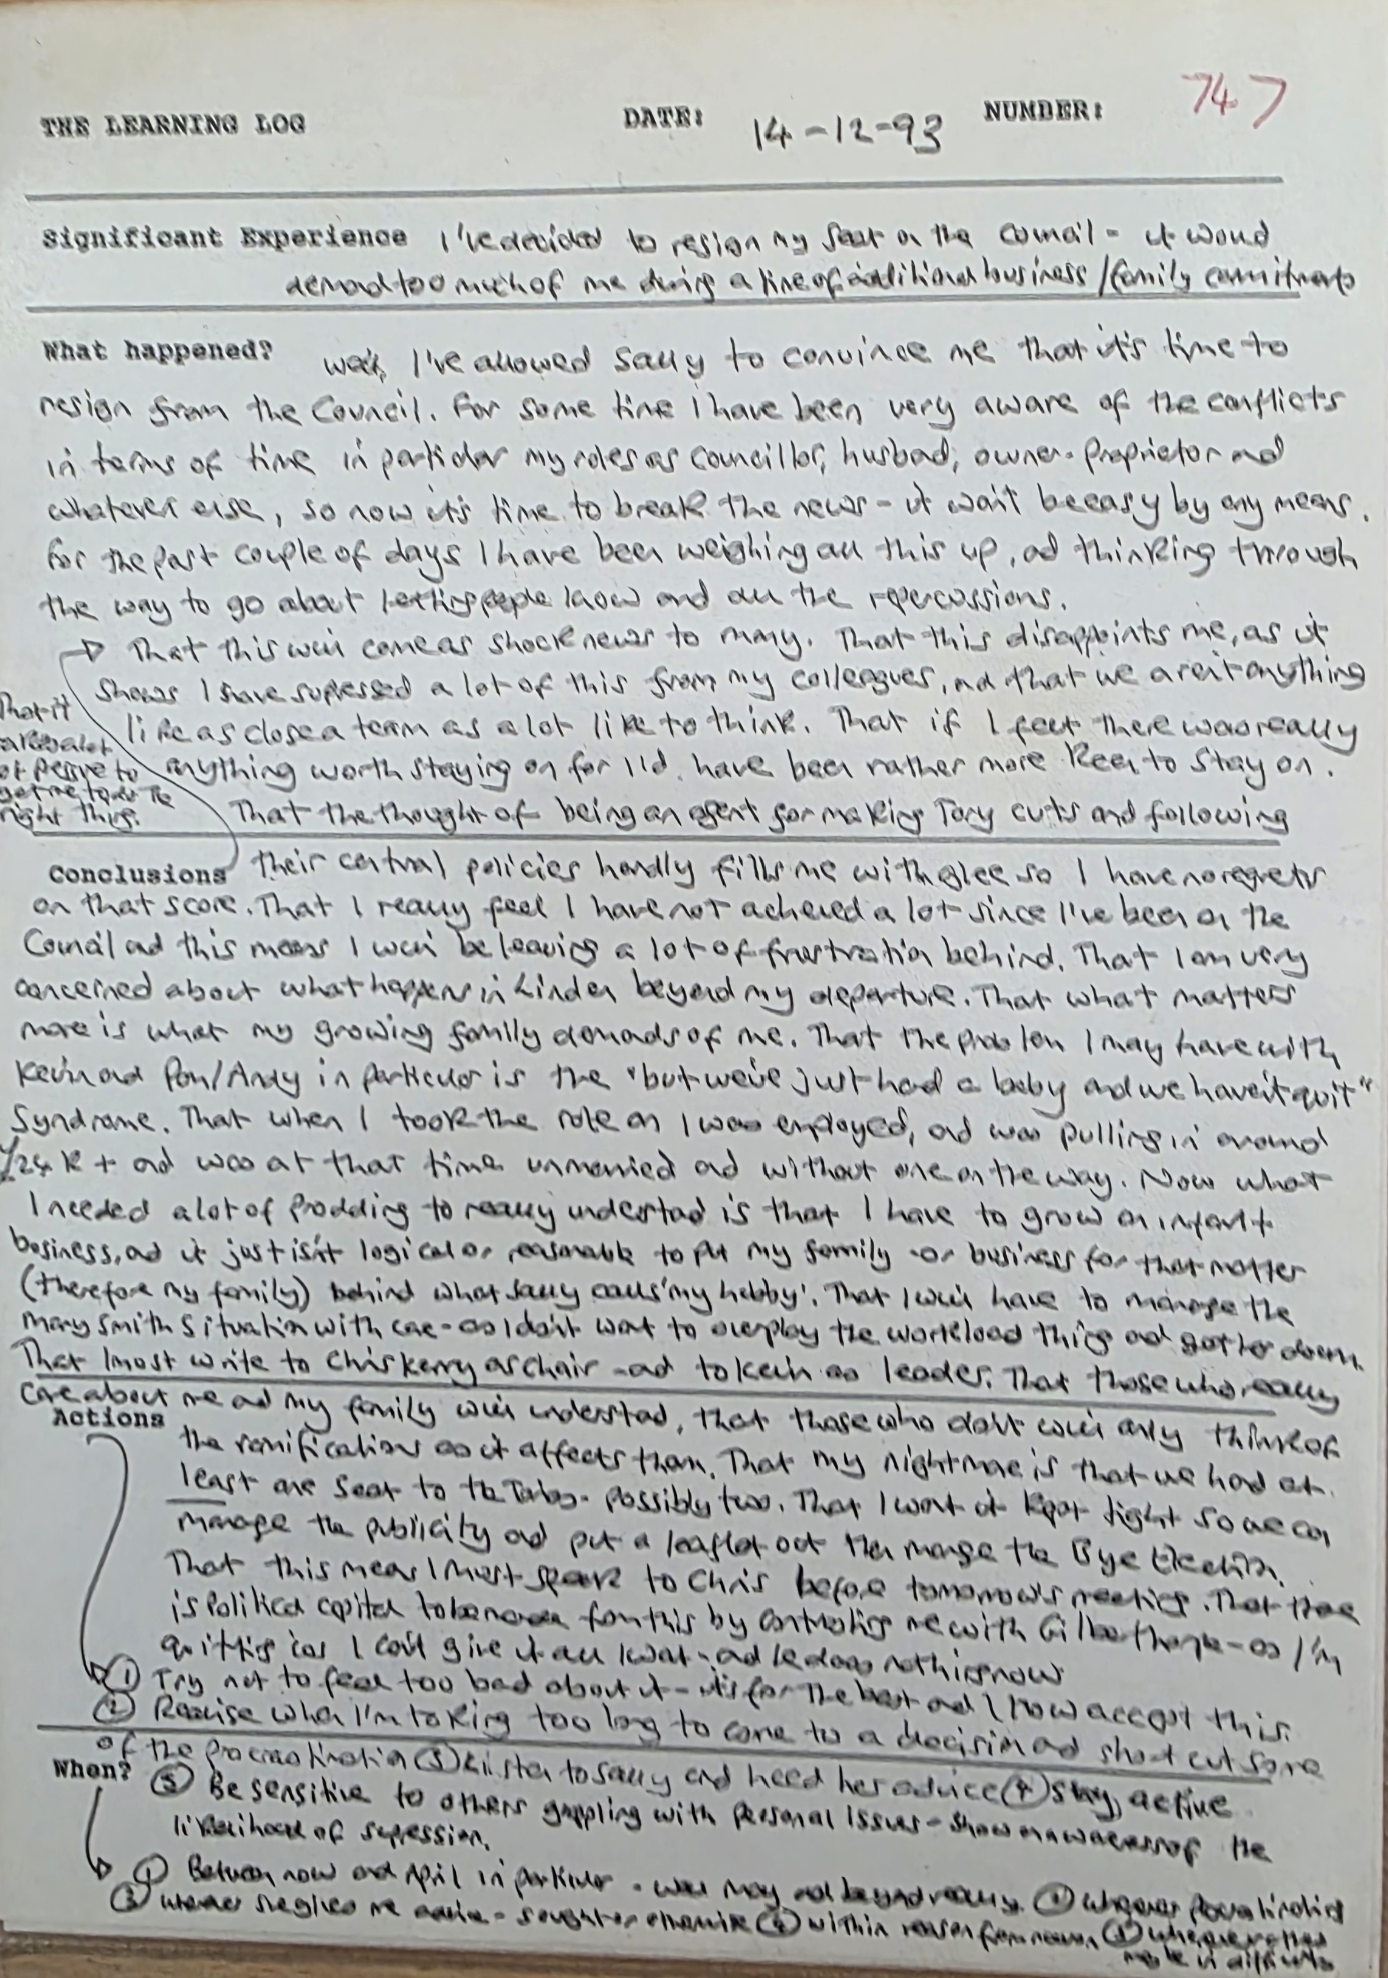 THE LEARNING LOG DATE: 14-12-93 NUMBER: 747
Significant Experience I've decided to resign my seat on the Council - it would
demand too much of me during a time of additional business/family commitments
What happened? Well, I've allowed Sally to convince me that it's time to
resign from the Council. For some time I have been very aware of the conflicts
in terms of time in particular my roles as councillor, husband, owner-proprietor and
whatever else, so now it's time to break the news - it won't be easy by any means.
For the past couple of days I have been weighing all this up, and thinking through
the way to go about letting people know and all the repercussions.
That this will come as shock news to many. That this disappoints me, as it
shows I have supressed a lot of this from my colleagues, and that we aren't anything
like as close a team as a lot like to think. That if I felt there was really
anything worth staying on for I'd have been rather more keen to stay on.
That it
takes a lot
of pessure to
get me to do the
right thing.
That the thought of being an agent for making Tory cuts and following
Conclusions their central policies hardly fills me with glee so I have no regrets
on that score. That I really feel I have not acheved a lot since I've been on the
Council and this means I will be leaving a lot of frustration behind. That I am very
concerned about what happens in Linden beyond my departure. That what matters
more is what my growing family demands of me. That the problem I may have with
Kevin and Pom/Andy in particular is the "but we've just had a baby and we haven't quit"
Syndrome. That when I took the role on I was employed, and was pulling in around
£24K+ and was at that time unmarried and without one on the way. Now what
I needed a lot of prodding to really understand is that I have to grow an infant
business, and it just isn't logical or reasonable to put my family - or business for that matter
(therefore my family) behind what Sally calls 'my hobby'. That I will have to manage the
Mary Smith situation with care - as I don't want to overplay the workload thing and get her down.
That I must write to Chris Kerry as chair - and to Kevin as leader. That those who really
care about me and my family will understand, that those who don't will only think of
Actions the ramifications as it affects them. That my nightmare is that we hand at
least one seat to the Tories - possibly two. That I want it kept tight so we can
manage the publicity and put a leaflet out then manage the Bye Election.
That this means I must speak to Chris before tomorrow's meeting. That there
is Political capital to be made from this by contrasting me with Gilberthorpe - as I'm
quitting cos I can't give it all I want - and he does nothing now
① Try not to feel too bad about it - it's for the best and I now accept this.
② Realise when I'm taking too long to come to a decision and short cut some
of the procrastination ③ Listen to Sally and heed her advice ④ Stay active
When? ⑤ Be sensitive to others grappling with personal issues - show an awareness of the
likelihood of supression.
① Between now and April in particular - well May and beyond really. ② Whenever procrastinating
③ whenever she gives me advice - sought or otherwise ④ within reason from now on ⑤ whenever others
may be in difficulty